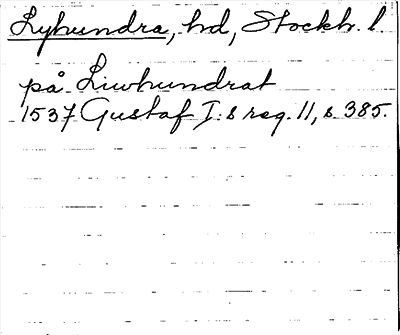 Lyhundra, hd, Stockh. l
på Liwhundrat
1537 Gustaf I:s reg. 11, s. 385.